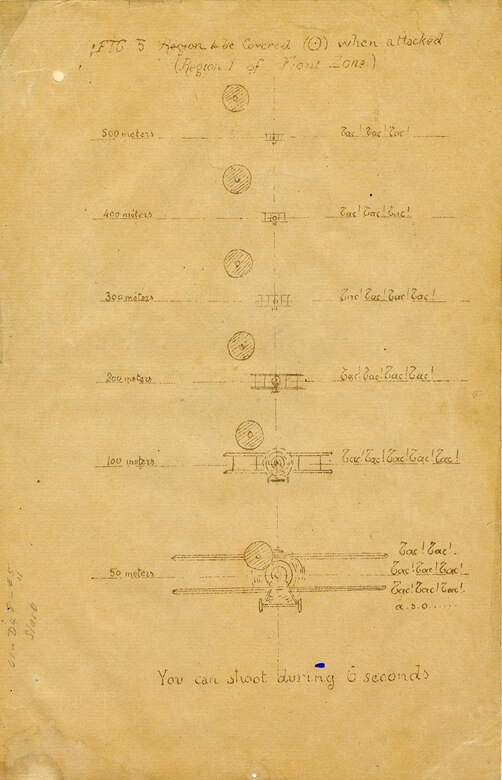 FIG 5 Region to be Covered (⊙) when attacked
(Region 1 of Front Zone)
500 meters Tac! Tac! Tac!
400 meters Tac! Tac! Tac!
300 meters Tac! Tac! Tac! Tac!
200 meters Tac! Tac! Tac! Tac!
100 meters Tac! Tac! Tac! Tac! Tac!
Tac! Tac!
50 meters Tac! Tac! Tac!
Tac! Tac! Tac!
a.s.o......
You can shoot during 6 seconds